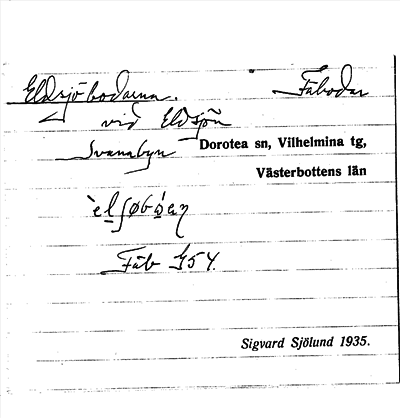 Eldsjöbodarna. Fäbodar
vid Eldsjön
Svanabyn Dorotea sn, Vilhelmina tg,
Västerbottens län
Fäb G54.
Sigvard Sjölund 1935.